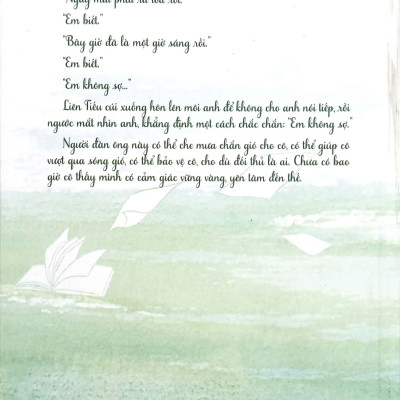 "Ngày mai phải ra tòa rồi."
"Em biết."
"Bây giờ đã là một giờ sáng rồi."
"Em biết."
"Em không sợ..."
Liên Tiểu cúi xuống hôn lên môi anh để không cho anh nói tiếp, rồi
ngước mắt nhìn anh, khẳng định một cách chắc chắn: "Em không sợ."
Người đàn ông này có thể che mưa chắn gió cho cô, có thể giúp cô
vượt qua sóng gió, có thể bảo vệ cô, cho dù đối thủ là ai. Chưa có bao
giờ cô thấy mình có cảm giác vững vàng, yên tâm đến thế.